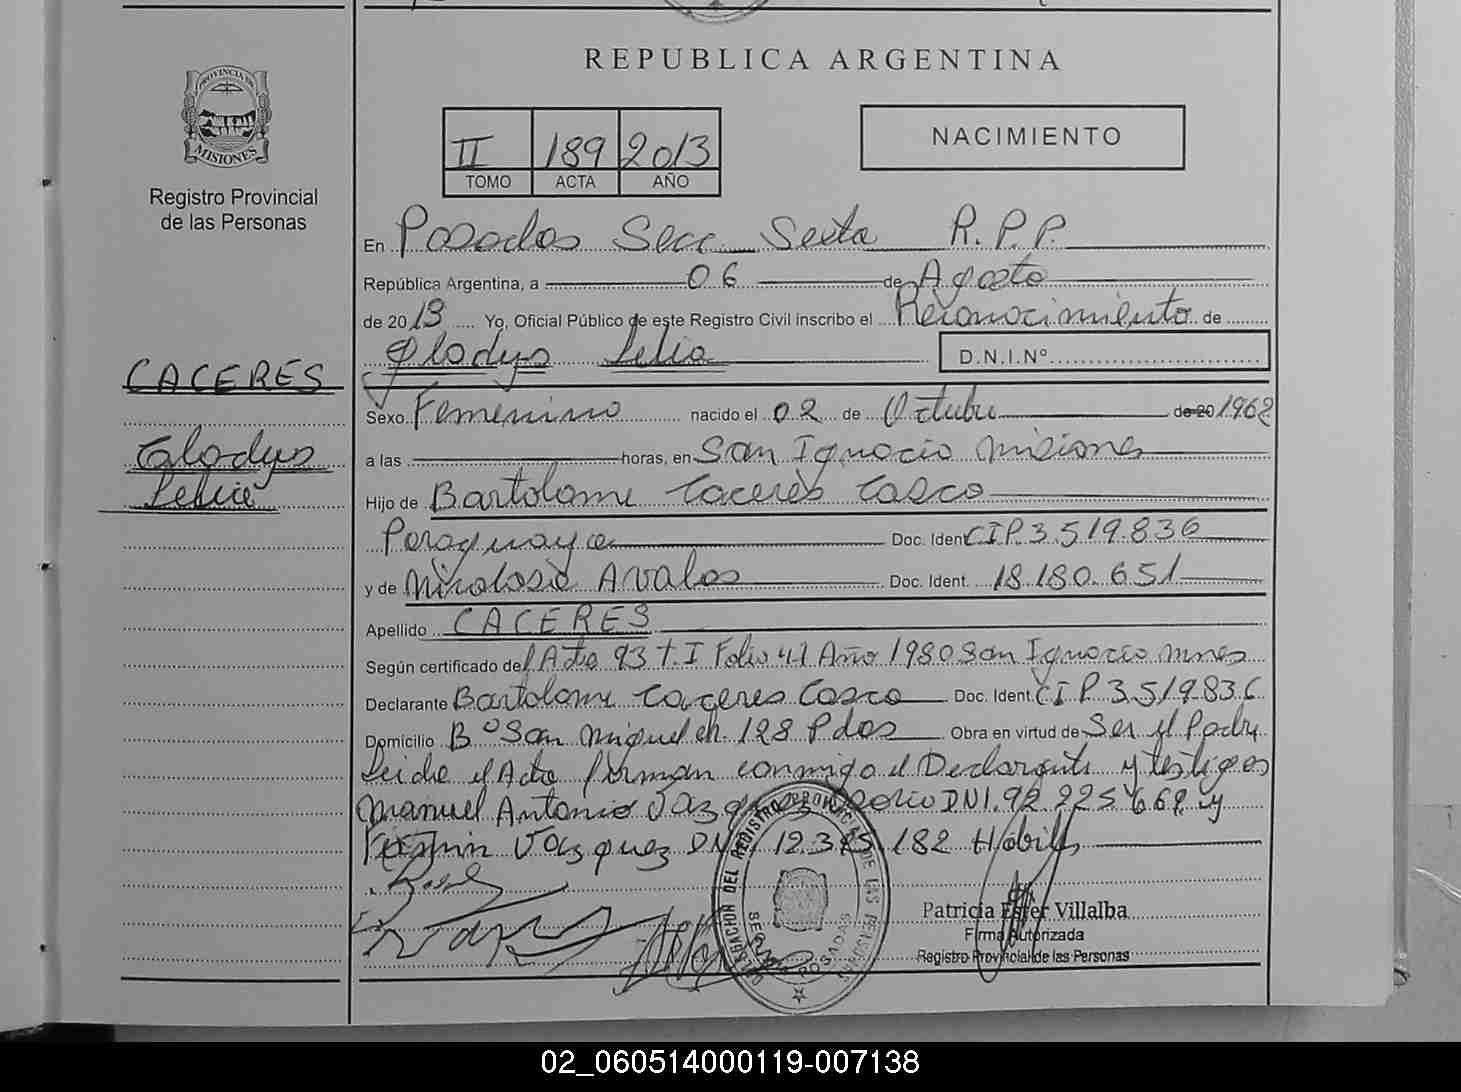 REPUBLICA ARGENTINA
PROVINCIA DE
MISIONES
Registro Provincial
de las Personas
II 189 2013
TOMO ACTA AÑO
NACIMIENTO
En Posadas Secc Sexta R.P.P.
República Argentina, a 06 de Agosto
de 2013 Yo, Oficial Público de este Registro Civil inscribo el Reconocimiento de
Gladys Lelia D.N.I.Nº
CACERES
Gladys
Sexo Femenino nacido el 02 de Octubre de 20 1962
a las horas, en San Ignacio Misiones
Hijo de Bartolome Caceres Casco
Paraguaya Doc. Ident. C.I.P. 3.519.836
y de Nicolasa Avalos Doc. Ident. 18.180.651
Apellido CACERES
Según certificado del Acta 93 t. I Folio 41 Año 1980 San Ignacio Mnes
Declarante Bartolome Caceres Casco Doc. Ident. C I P. 3.519.836
Domicilio Bº San Miguel ch. 128 Pdas Obra en virtud de Ser el Padre
Leida el Acta firman conmigo el Declarante y testigos
Manuel Antonio Vazquez DNI. 92.225.662 y
Fermin Vazquez DNI 12.375.182 Habiles
DELEGACION DEL REGISTRO PROVINCIAL DE LAS PERSONAS
POSADAS
Patricia Ester Villalba
Firma Autorizada
Registro Provincial de las Personas
02_060514000119-007138